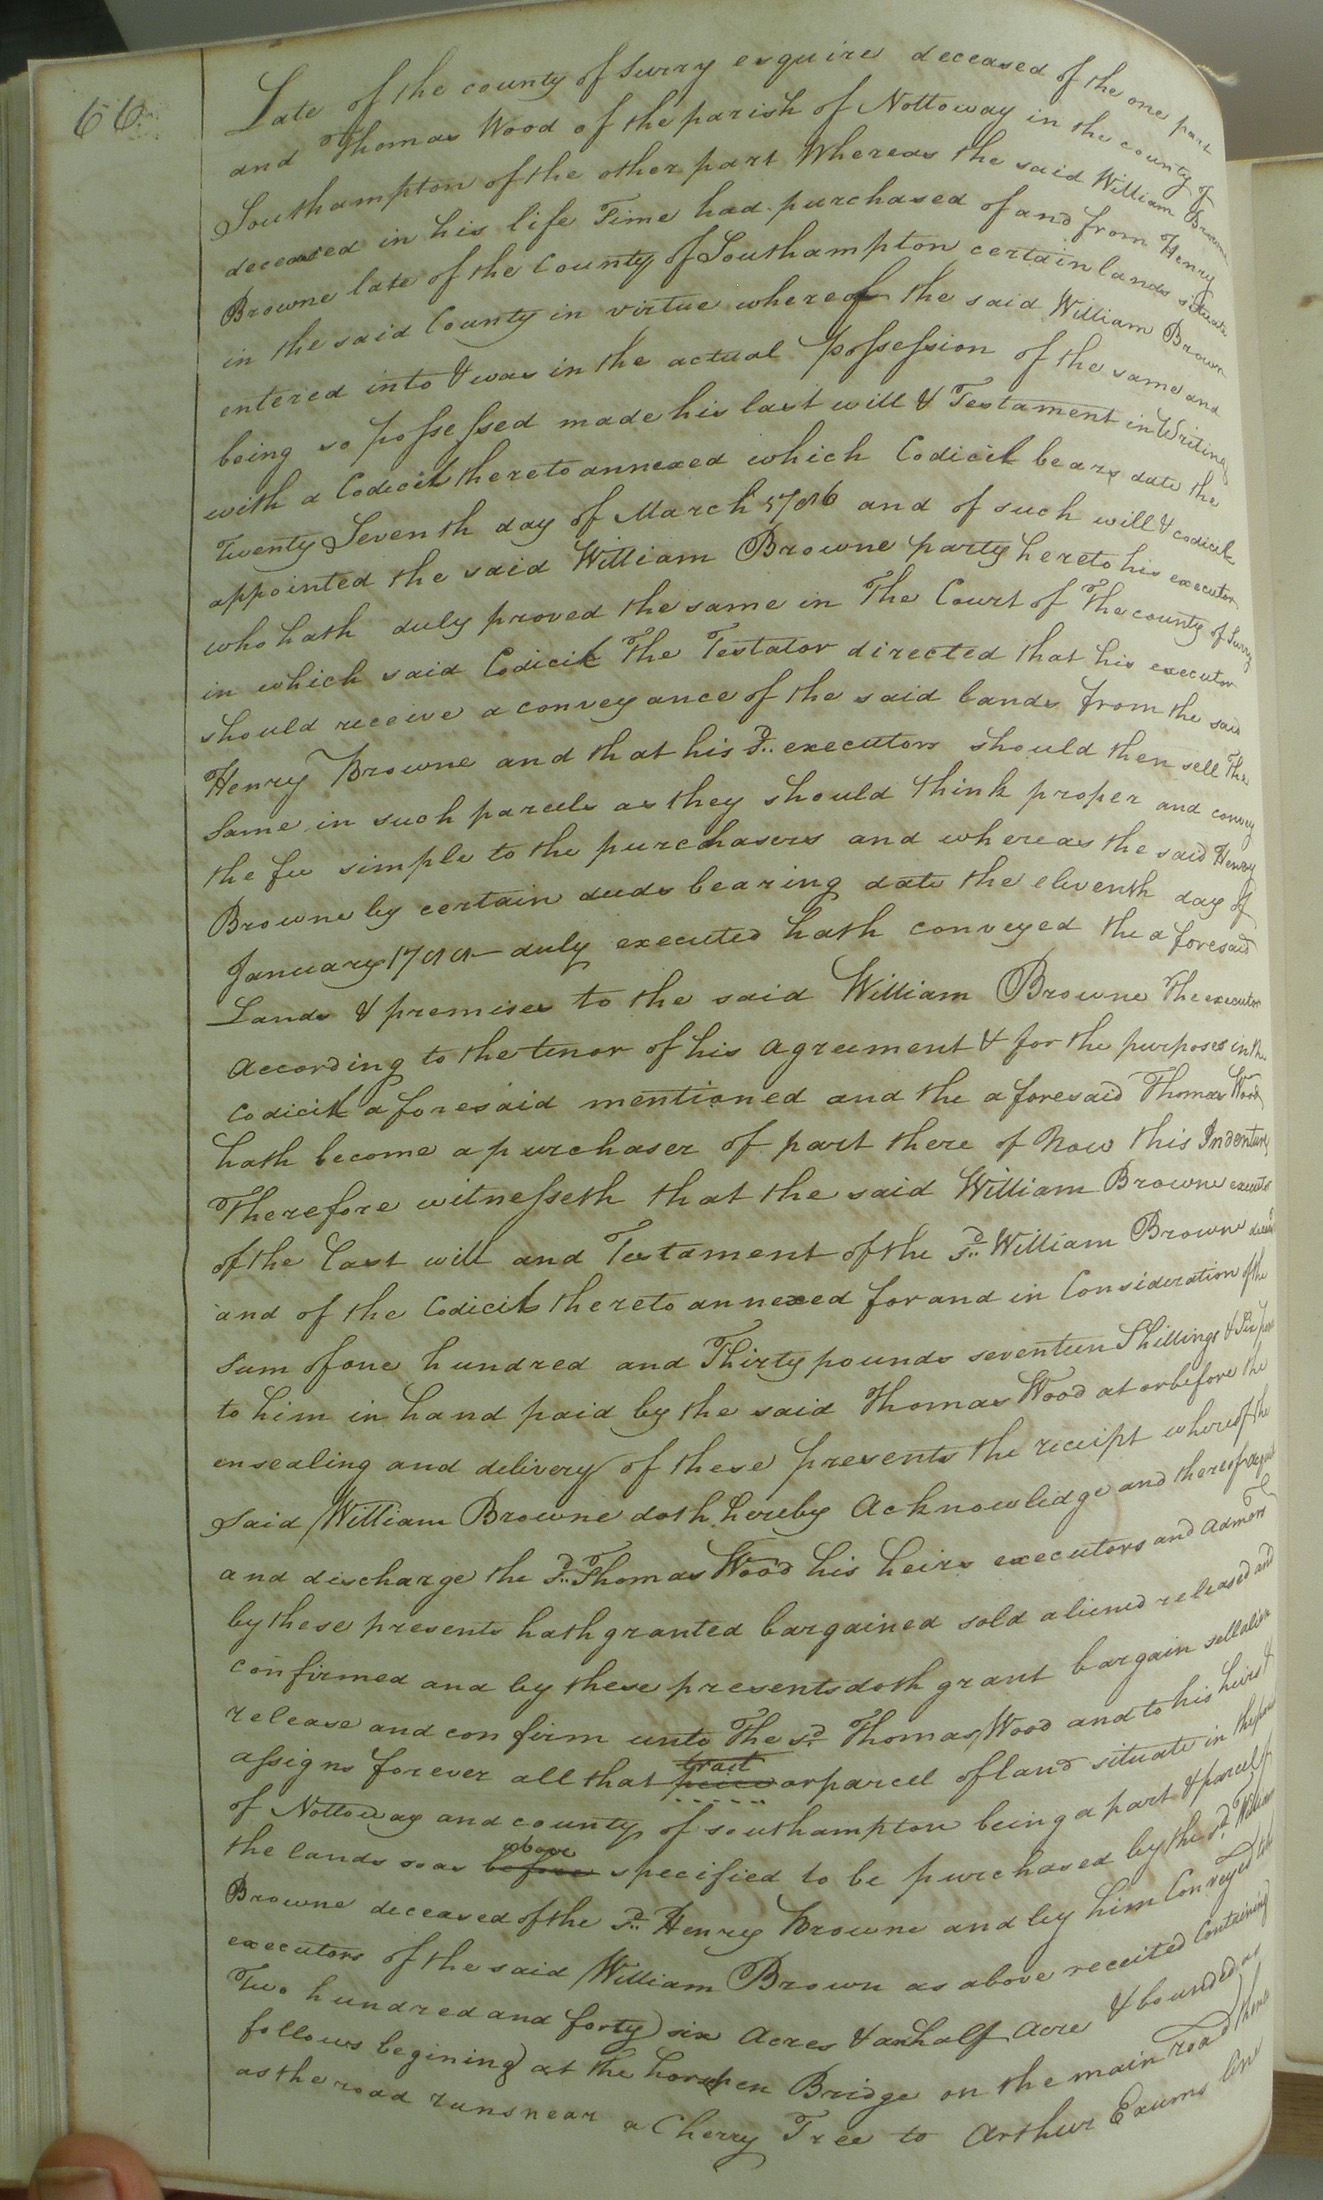 66
Late of the county of Surry esquire deceased of the one part
and Thomas Wood of the parish of Nottoway in the county of
Southampton of the other part Whereas the said William Browne
deceased in his life Time had purchased of and from Henry
Browne late of the County of Southampton certain lands situate
in the said County in virtue whereof the said William Brown
entered into & was in the actual possession of the same and
being so possessed made his last will & Testament in Writing
with a Codicil thereto annexed which Codicil bears date the
Twenty Seventh day of March 1786 and of such will & codicil
appointed the said William Browne party hereto his executor
who hath duly proved the same in The Court of The county of Surry
in which said Codicil The Testator directed that his executor
should receive a conveyance of the said lands from the said
Henry Browne and that his sd.. executors should then sell The
Same in such parcels as they should think proper and convey
the fee simple to the purchasers and whereas the said Henry
Browne by certain deeds bearing date the eleventh day of
January 1788 duly executed hath conveyed the aforesaid
Lands & premises to the said William Browne The executor
According to the tenor of his agreement & for the purposes in the
codicil aforesaid mentioned and the aforesaid Thomas Wood
hath become a purchaser of part there of Now this Indenture
Therefore witnesseth that the said William Browne executor
of the last will and Testament of the sd.. William Browne deceasd
and of the Codicil thereto annexed for and in Consideration of the
Sum of one hundred and Thirty pounds seventeen Shillings & Six pence
to him in hand paid by the said Thomas Wood at or before the
ensealing and delivery of these presents the receipt whereof the
said William Browne doth hereby Acknowlidge and thereof acquit
and discharge the sd.. Thomas Wood his heirs executors and Admors
by these presents hath granted bargained sold aliened released and
confirmed and by these presents doth grant bargain sell alien
release and confirm unto The sd. Thomas Wood and to his heirs &
assigns forever all that piece tract or parcel of land situate in the
of Nottoway and county of southampton being a part & parcel of
the lands so as before above specified to be purchased by the sd. William
Browne deceased of the sd.. Henry Browne and by him Conveyed to the
executors of the said William Brown as above receited Containing
Two hundred and forty six Acres & an half Acre & bounded as
follows begining at the horsepen Bridge on the main road thence
as the road runs near a Cherry Tree to Arthur Exums line